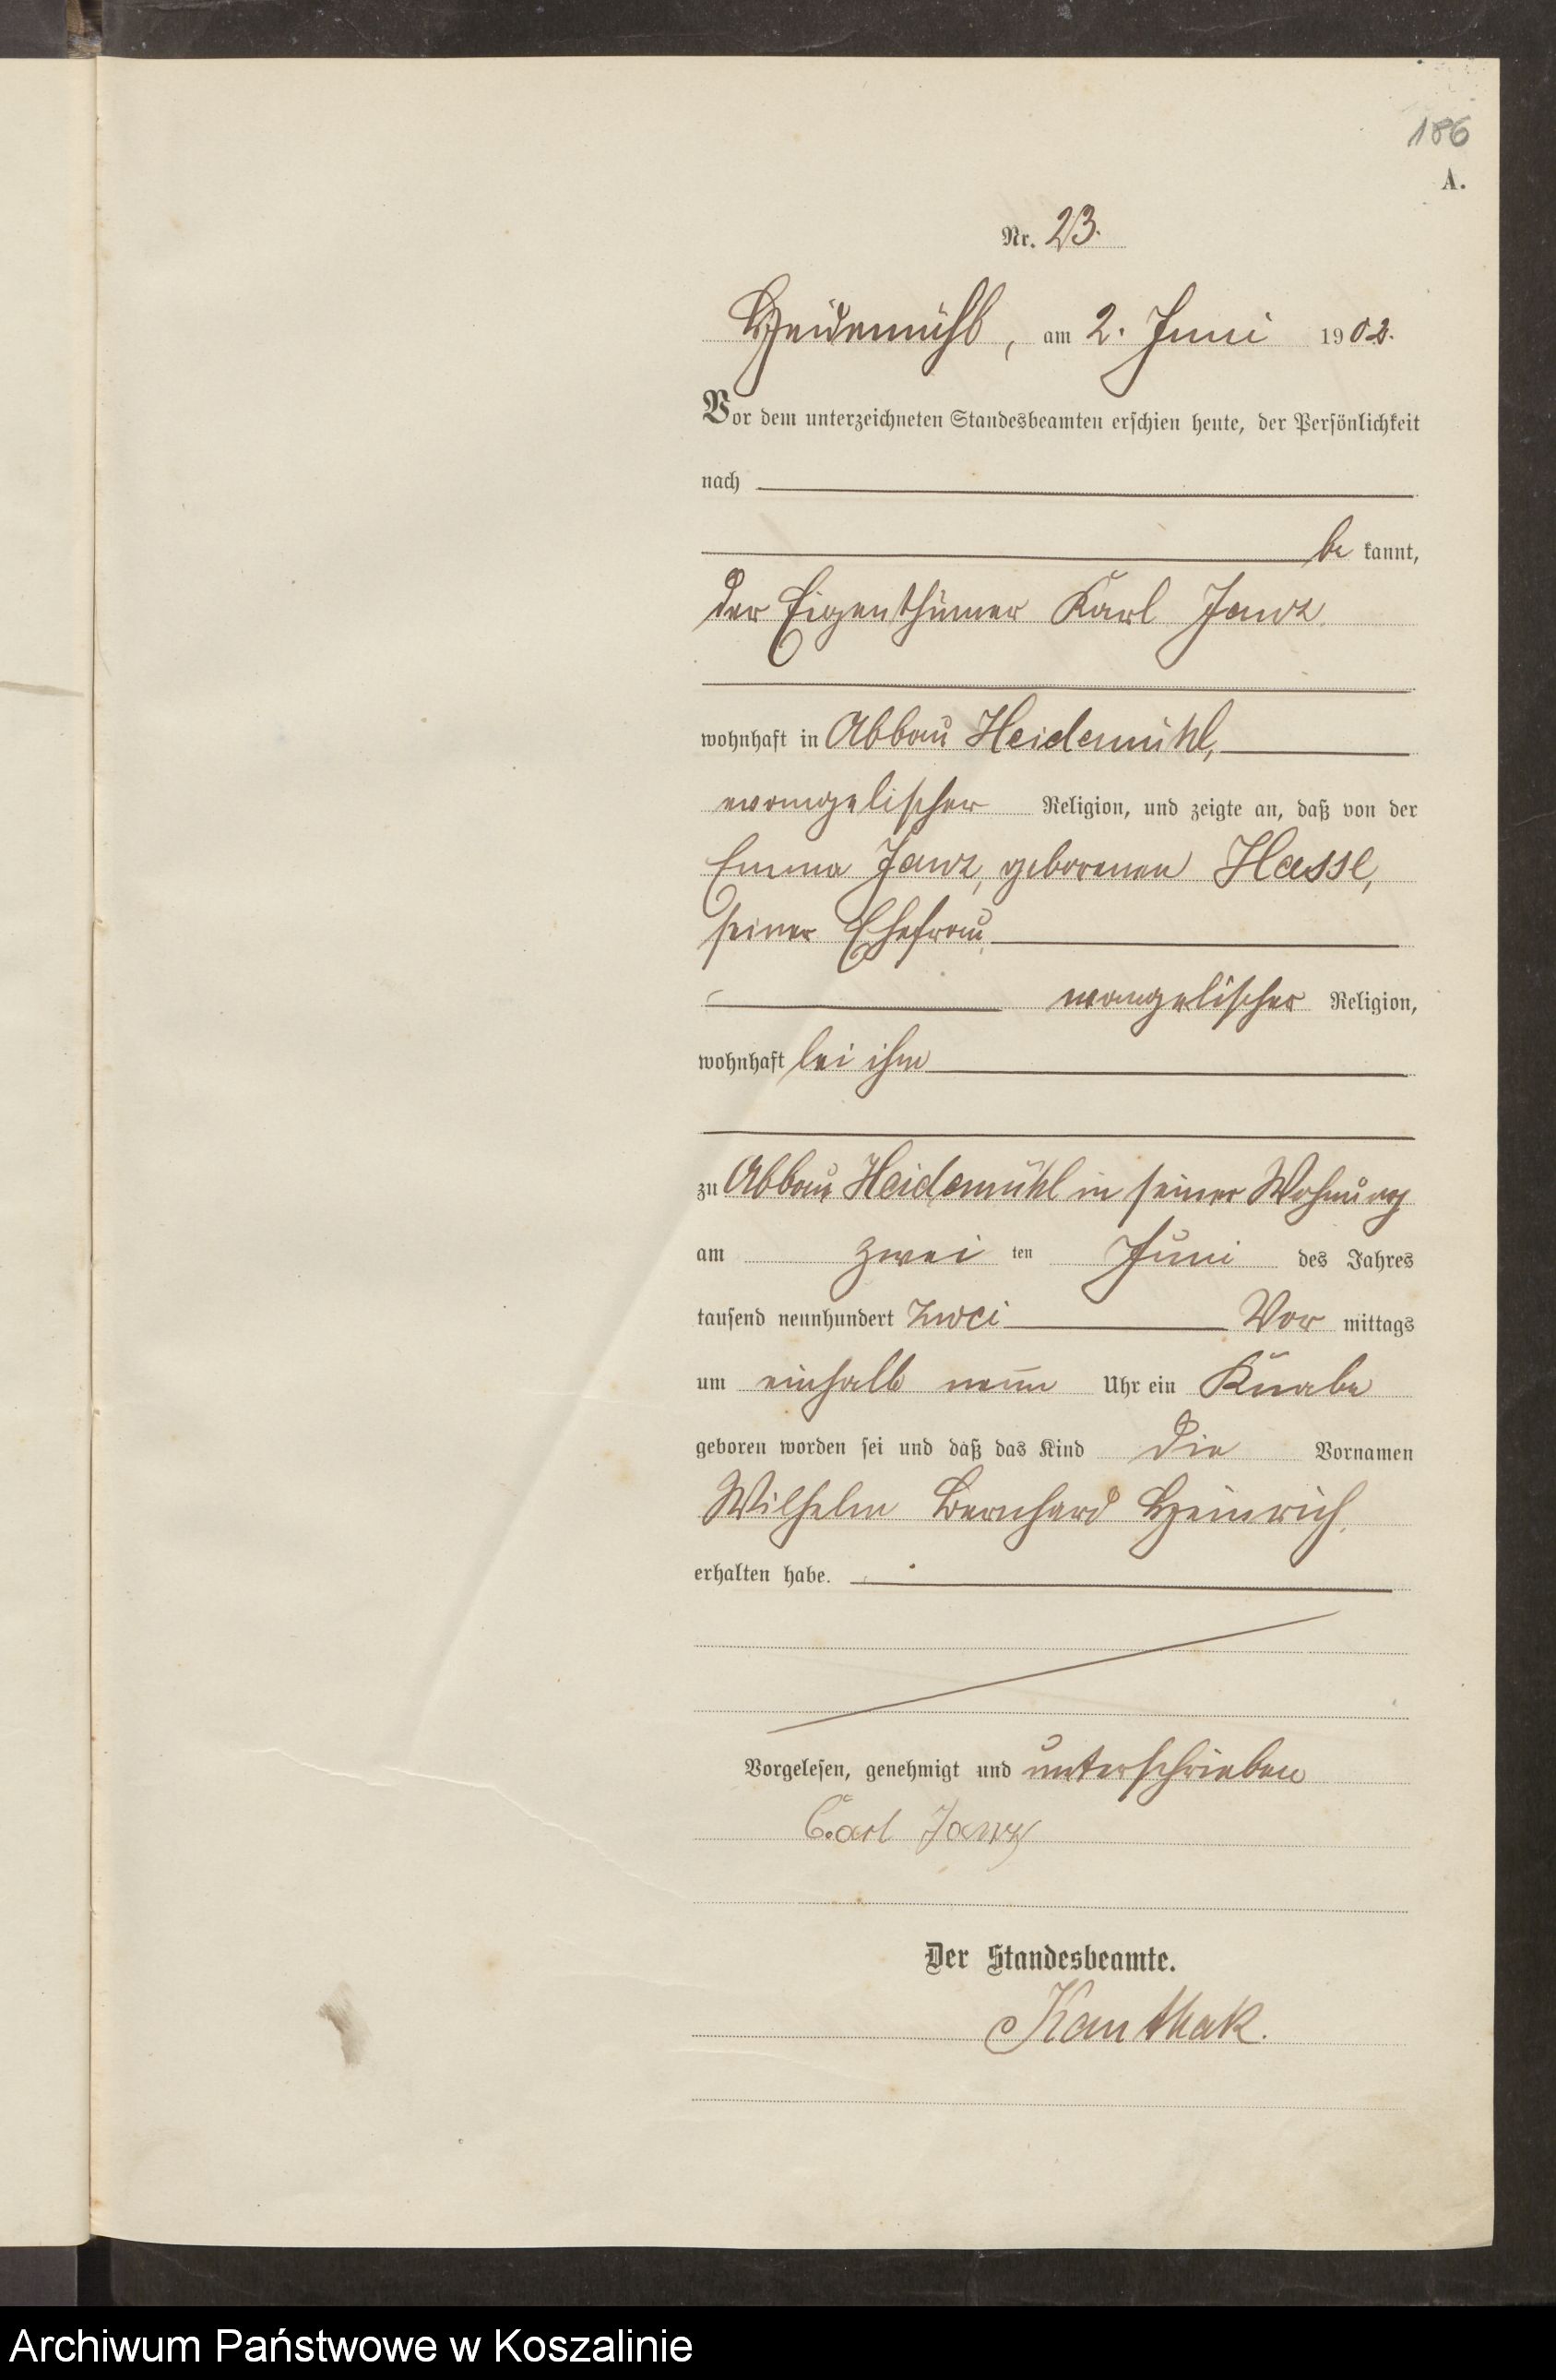 186
A.
Nr. 23.
Heidemühl, am 2. Juni 1902.
Vor dem unterzeichneten Standesbeamten erschien heute, der Persönlichkeit
nach
be kannt,
der Eigenthümer Karl Janz
wohnhaft in Abbau Heidemühl,
evangelischer Religion, und zeigte an, daß von der
Emma Janz, geborenen Hasse,
seiner Ehefrau,
evangelischer Religion,
wohnhaft bei ihm
zu Abbau Heidemühl in seiner Wohnung
am zwei ten Juni des Jahres
tausend neunhundert zwei Vor mittags
um einhalb neun Uhr ein Knabe
geboren worden sei und daß das Kind die Vornamen
Wilhelm Bernhard Heinrich
erhalten habe.
Vorgelesen, genehmigt und unterschrieben
Carl Janz
Der Standesbeamte.
Kanthak.
Archiwum Państwowe w Koszalinie